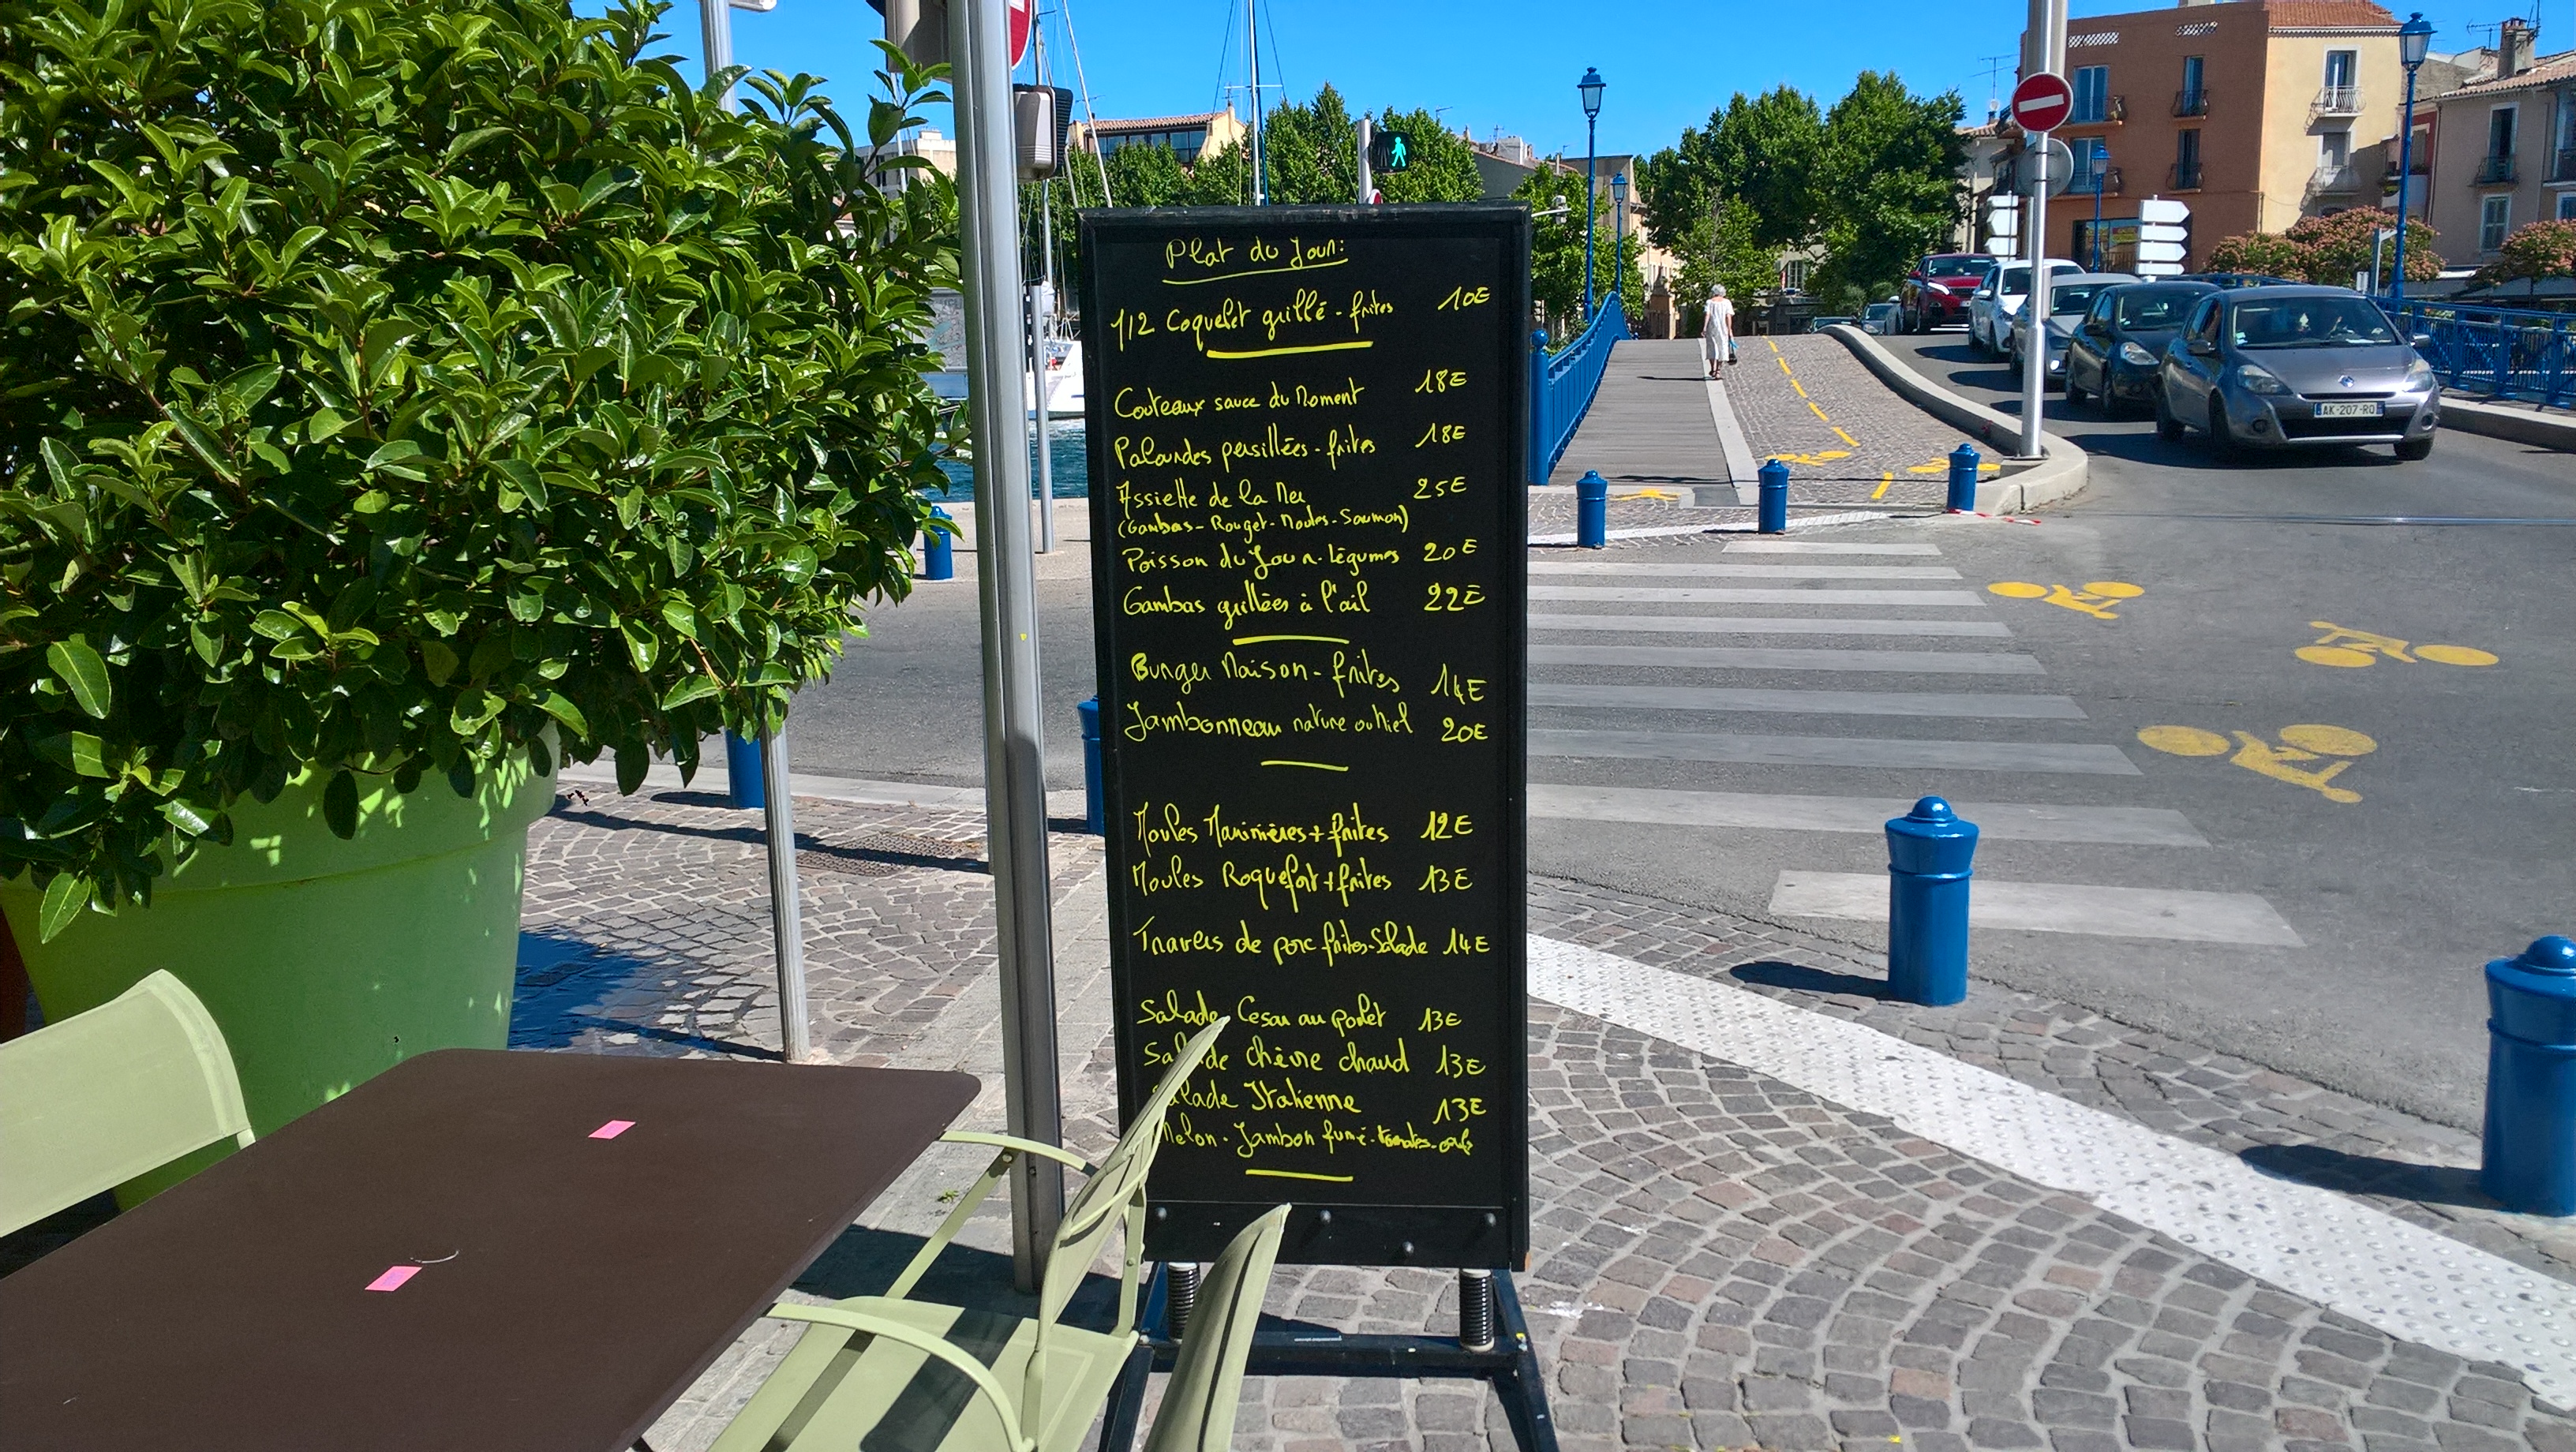 Plat du Jour:
1/2 Coquelet grillé - frites 10E
Couteaux sauce du Moment 18E
Palourdes persillées - frites 18E
Assiette de la Mer 25E
(Gambas - Rouget - Moules - Saumon)
Poisson du Jour - légumes 20E
Gambas grillées à l'ail 22E
Burger Maison - frites 14E
Jambonneau nature ou Miel 20E
Moules Marinières + frites 12E
Moules Roquefort + frites 13E
Travers de porc frites - Salade 14E
Salade Cesar au poulet 13E
Salade Chèvre chaud 13E
Salade Italienne 13E
Melon - Jambon fumé - tomates - oeufs
AK-207-RQ